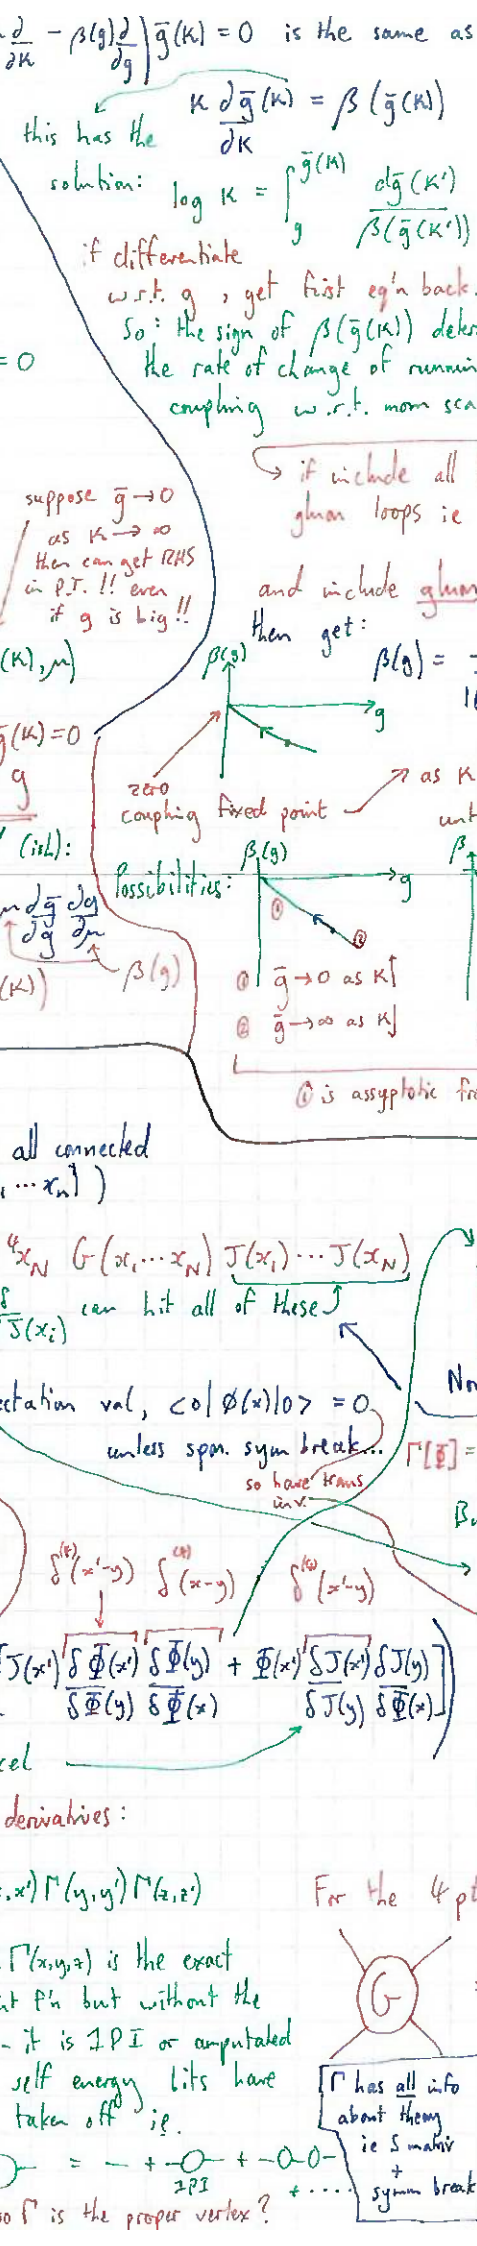 ∂/∂κ - β(g)∂/∂g) ḡ(κ) = 0 is the same as
κ ∂ḡ(κ)/∂κ = β(ḡ(κ))
this has the
solution: log κ = ∫_g^ḡ(κ) dḡ(κ')/β(ḡ(κ'))
if differentiate
w.r.t. g, get first eq'n back.
So: the sign of β(ḡ(κ)) deter
= 0
the rate of change of runnin
coupling w.r.t. mom sca
→ if include all
gluon loops ie
suppose ḡ→0
as κ→∞
then can get RHS
in P.T. !! even
if g is big!!
and include gluon
then get:
(κ),μ)
β(g) =
16
β(g)
g
ḡ(κ)=0
g
zero
coupling fixed point
→ as κ
unt
(ish):
Possibilities:
β(g)
g
β
①
②
μ ∂ḡ/∂g ∂g/∂μ
β(g)
(κ))
① ḡ→0 as κ↑
② ḡ→∞ as κ↓
① is assyptotic fre
all connected
, ... xn] )
⁴x_N G(x, ... x_N) J(x₁) ... J(x_N)
δ/δJ(xi) can hit all of these
ectation val, <0|ϕ(x)|0> = 0
unless spon. sym break...
Γ[Φ] =
so have trans
inv.
Bu
δ⁽⁴⁾(x'-y) δ⁽⁴⁾(x-y) δ⁽⁴⁾(x'-y)
J(x') δΦ(x')/δΦ(y) δΦ(y)/δΦ(x) + Φ(x') δJ(x')/δJ(y) δJ(y)/δΦ(x)])
cel
derivatives:
,x')Γ(y,y')Γ(z,z')
For the 4 pt
Γ(x,y,z) is the exact
nt f'n but without the
G
- it is 1PI or amputated
self energy bits have
taken off ie.
Γ has all info
about theory
ie S matrix
+
symm break
= — + -O- + -O-O-
1PI
+ ....
so Γ is the proper vertex?